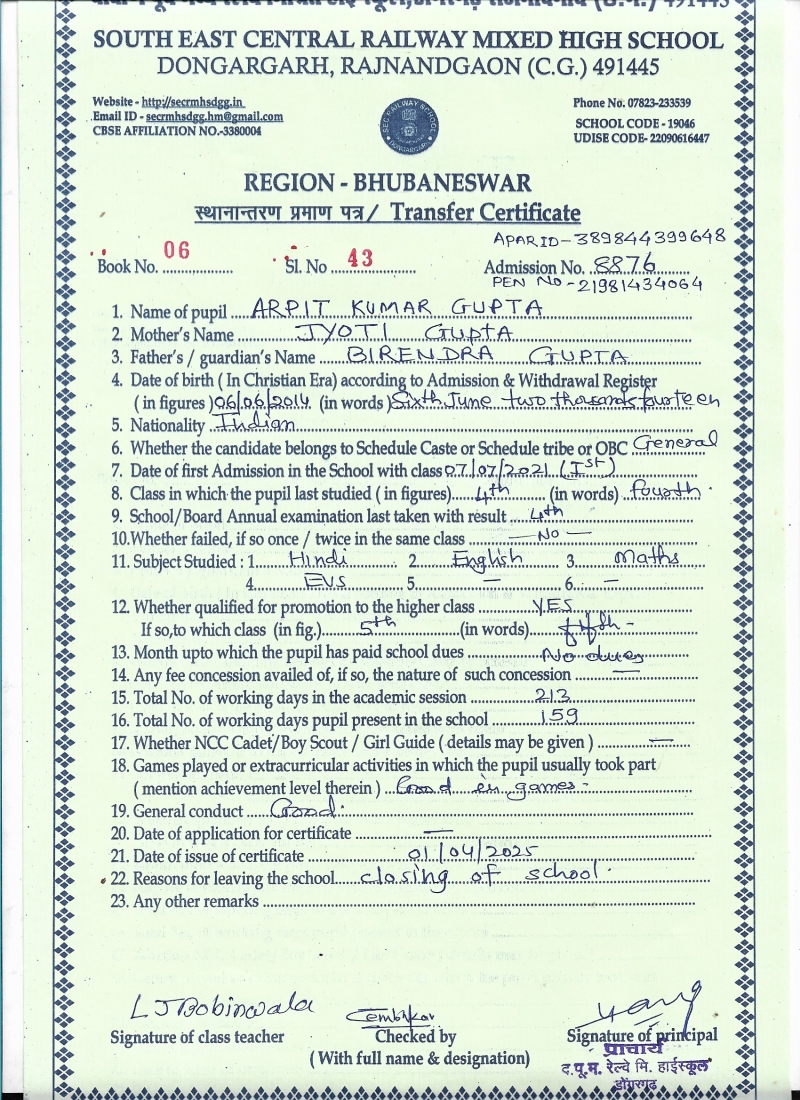 SOUTH EAST CENTRAL RAILWAY MIXED HIGH SCHOOL
DONGARGARH, RAJNANDGAON (C.G.) 491445
Website - http://secrmhsdgg.in
Email ID - secrmhsdgg.hm@gmail.com
CBSE AFFILIATION NO.-3380004
Phone No. 07823-233539
SCHOOL CODE - 19046
UDISE CODE- 22090616447
REGION - BHUBANESWAR
स्थानान्तरण प्रमाण पत्र / Transfer Certificate
APAR ID - 389844399648
Book No. 06 Sl. No 43 Admission No. 8876
PEN No - 21981434064
1. Name of pupil ARPIT KUMAR GUPTA
2. Mother's Name JYOTI GUPTA
3. Father's / guardian's Name BIRENDRA GUPTA
4. Date of birth ( In Christian Era) according to Admission & Withdrawal Register
( in figures ) 06/06/2014 (in words ) Sixth June two thousands fourteen
5. Nationality Indian
6. Whether the candidate belongs to Schedule Caste or Schedule tribe or OBC General
7. Date of first Admission in the School with class 07/07/2021 (Ist)
8. Class in which the pupil last studied ( in figures) 4th (in words) fourth
9. School/Board Annual examination last taken with result 4th
10.Whether failed, if so once / twice in the same class — No —
11. Subject Studied : 1. Hindi 2. English 3. Maths
4. EVS 5. — 6. —
12. Whether qualified for promotion to the higher class YES
If so,to which class (in fig.) 5th (in words) fifth -
13. Month upto which the pupil has paid school dues No dues
14. Any fee concession availed of, if so, the nature of such concession —
15. Total No. of working days in the academic session 213
16. Total No. of working days pupil present in the school 159
17. Whether NCC Cadet/Boy Scout / Girl Guide ( details may be given ) —
18. Games played or extracurricular activities in which the pupil usually took part
( mention achievement level therein ) Good in games -
19. General conduct Good
20. Date of application for certificate —
21. Date of issue of certificate 01/04/2025
22. Reasons for leaving the school closing of school
23. Any other remarks
L J Bobinwala
Signature of class teacher Checked by Signature of principal
(With full name & designation)
प्राचार्य
द.पू.म. रेल्वे मि. हाईस्कूल
डोंगरगढ़